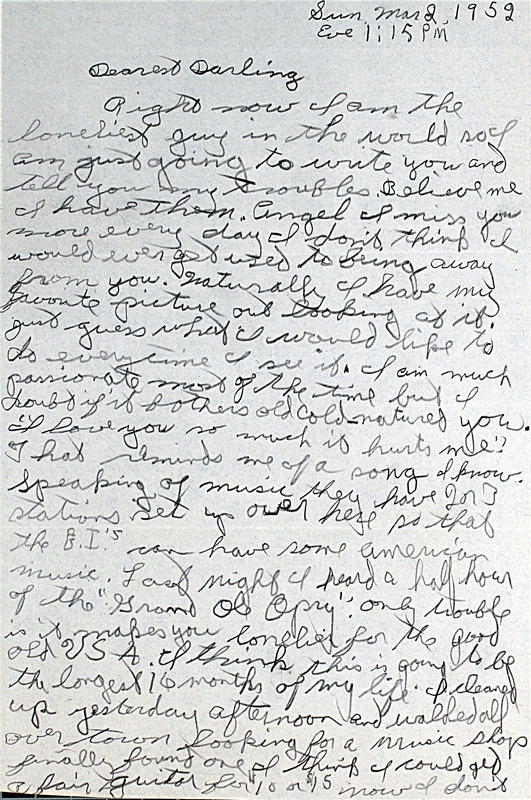 Sun Mar 2, 1952
Eve 1:15 PM
Dearest Darling
Right now I am the
loneliest guy in the world so I
am just going to write you and
tell you my troubles. Believe me
I have them. Angel I miss you
more every day I don't think I
would ever get used to being away
from you. Naturally I have my
favorite picture out looking at it.
just guess what I would like to
do everytime I see it. I am much
passionate most of the time but I
doubt if it bothers old cold natured you.
I love you so much it hurts me!!
That reminds me of a song I know.
Speaking of music they have 2 or 3
stations set up over here so that
the G.I.'s can have some american
music. Last night I heard a half hour
of the "Grand Old Opry". only trouble
is it makes you lonelier for the good
old U S A. I think this is going to be
the longest 16 months of my life. I cleaned
up yesterday afternoon and walked all
over town looking for a music shop
finally found one I think I could get
a fair guitar for $10 or $15 now I don't